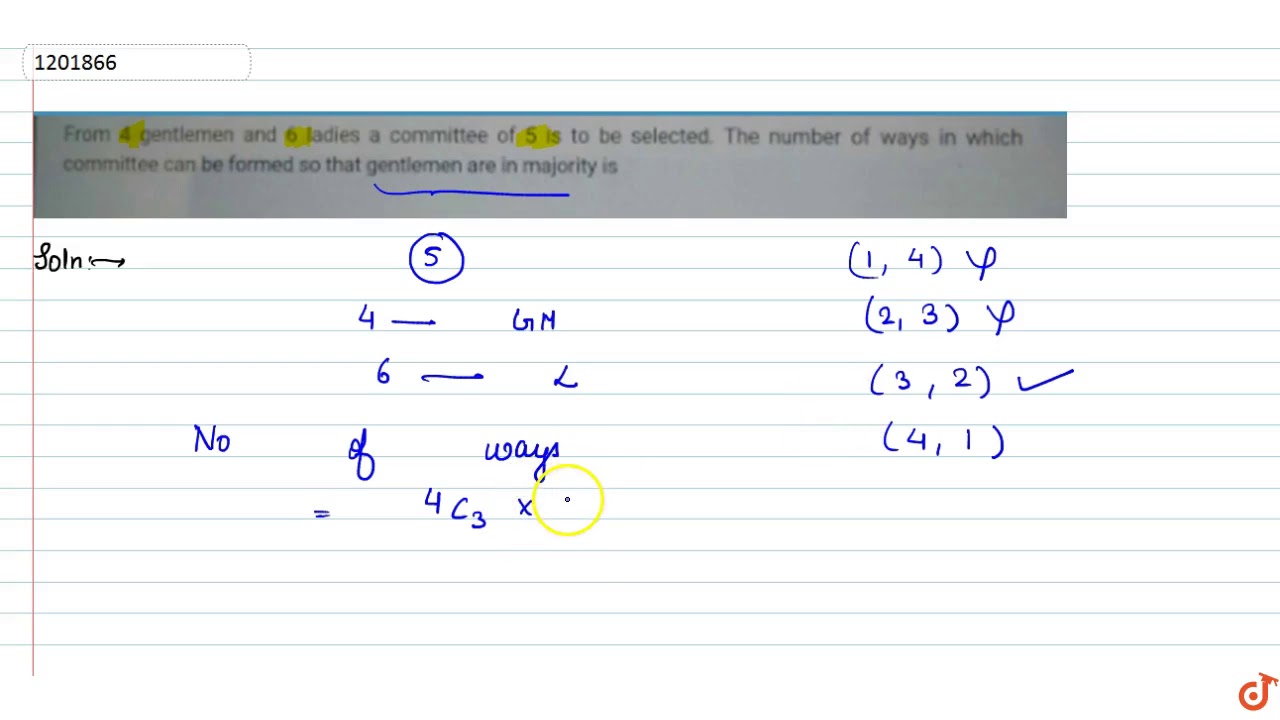 1201866
From 4 gentlemen and 6 ladies a committee of 5 is to be selected. The number of ways in which
committee can be formed so that gentlemen are in majority is
Soln:→
5
(1, 4) φ
4 — GM
(2, 3) φ
6 — L
(3, 2) ✓
No of ways
(4, 1)
= 4C3 ×